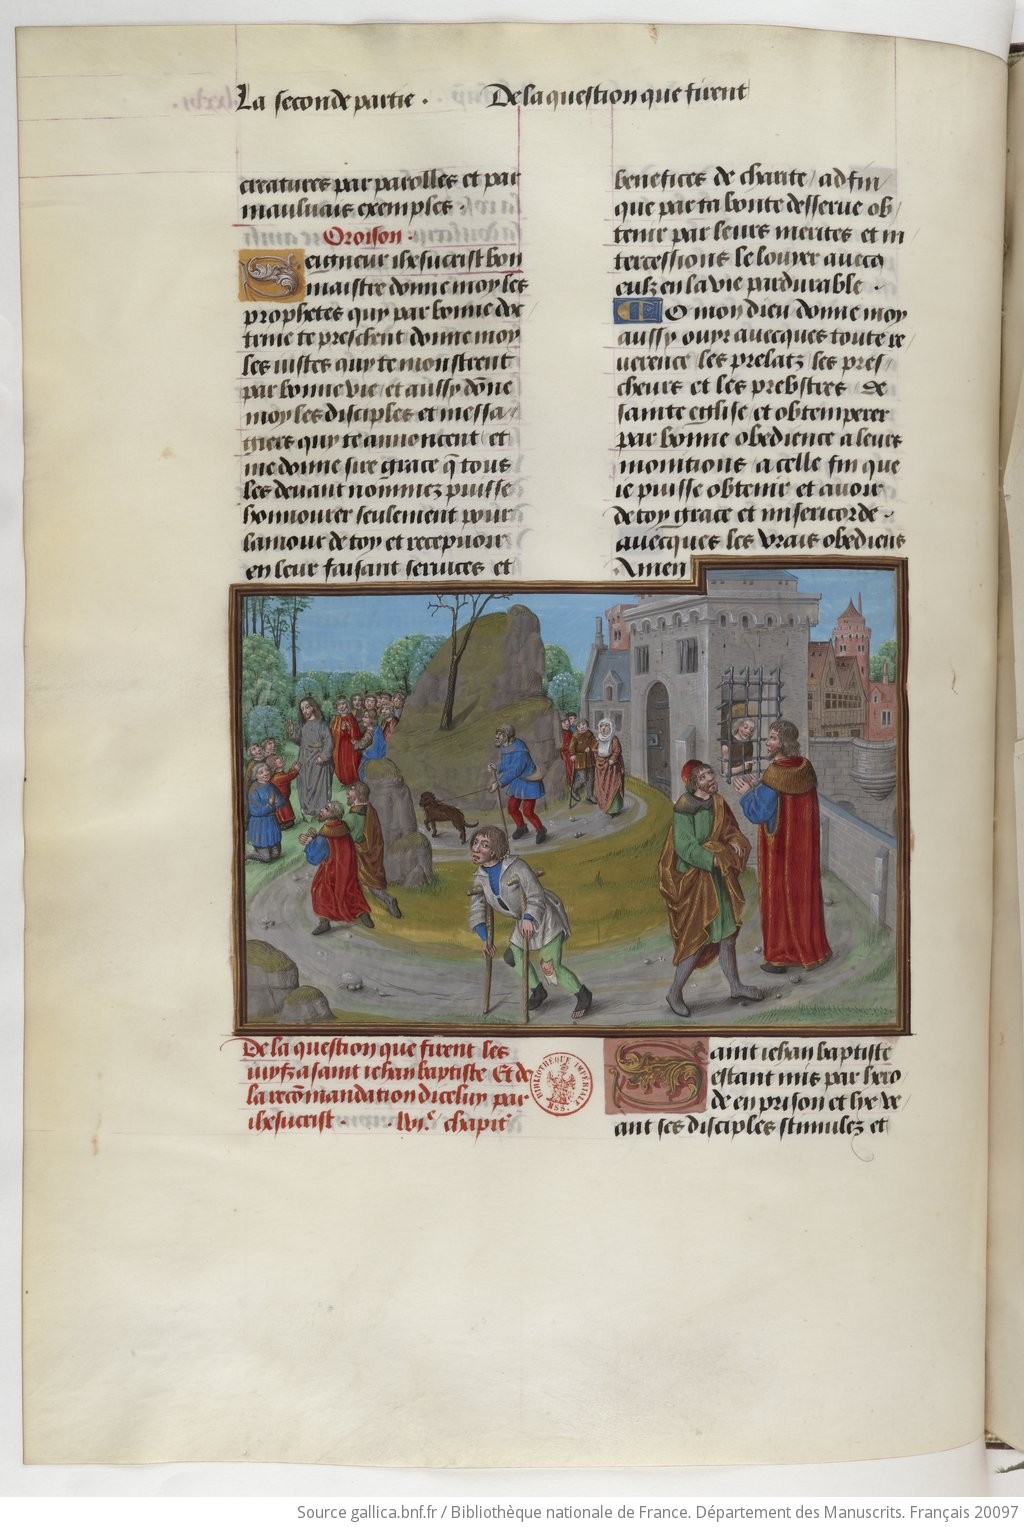 La seconde partie . De la question que firent
creatures par parolles et par
mauluais exemples .
Oroison .
Seigneur ihesucrist bon
maistre donne moy les
prophetes quy par bonne doc
trine te preschent donne moy
les iustes quy te monstrent
par bonne vie / et aussy dōne
moy les disciples et messa /
giers quy te annoncent / et
me donne sire grace q̄ tous
les deuant nommez puisse
honnourer seulement pour
lamour de toy et recepuoir
en leur faisant seruices et
benefices de charite / ad fin /
que par ta bonte desserue ob /
tenir par leurs merites et in
tercessions le louyer auecq
eulz en la vie pardurable .
O mon dieu donne moy
aussy ouyr auecques toute re /
uerence les prelatz les pres /
cheurs et les prebstres de
sainte eglise et obtemperer
par bonne obedience a leurs
monitions a celle fin que
ie puisse obtenir et auoir
de toy grace et misericorde .
auecques les vrais obediens
Amen
De la question que firent les
iuyfz a saint iehan baptiste Et de
la recōmandation dicelluy par
ihesucrist . . lvi.e chapit.
BIBLIOTHÈQUE IMPÉRIALE
MSS.
Saint iehan baptiste
estant mis par hero
de en prison et live ve
ant ses disciples stimulez et
Source gallica.bnf.fr / Bibliothèque nationale de France. Département des Manuscrits. Français 20097